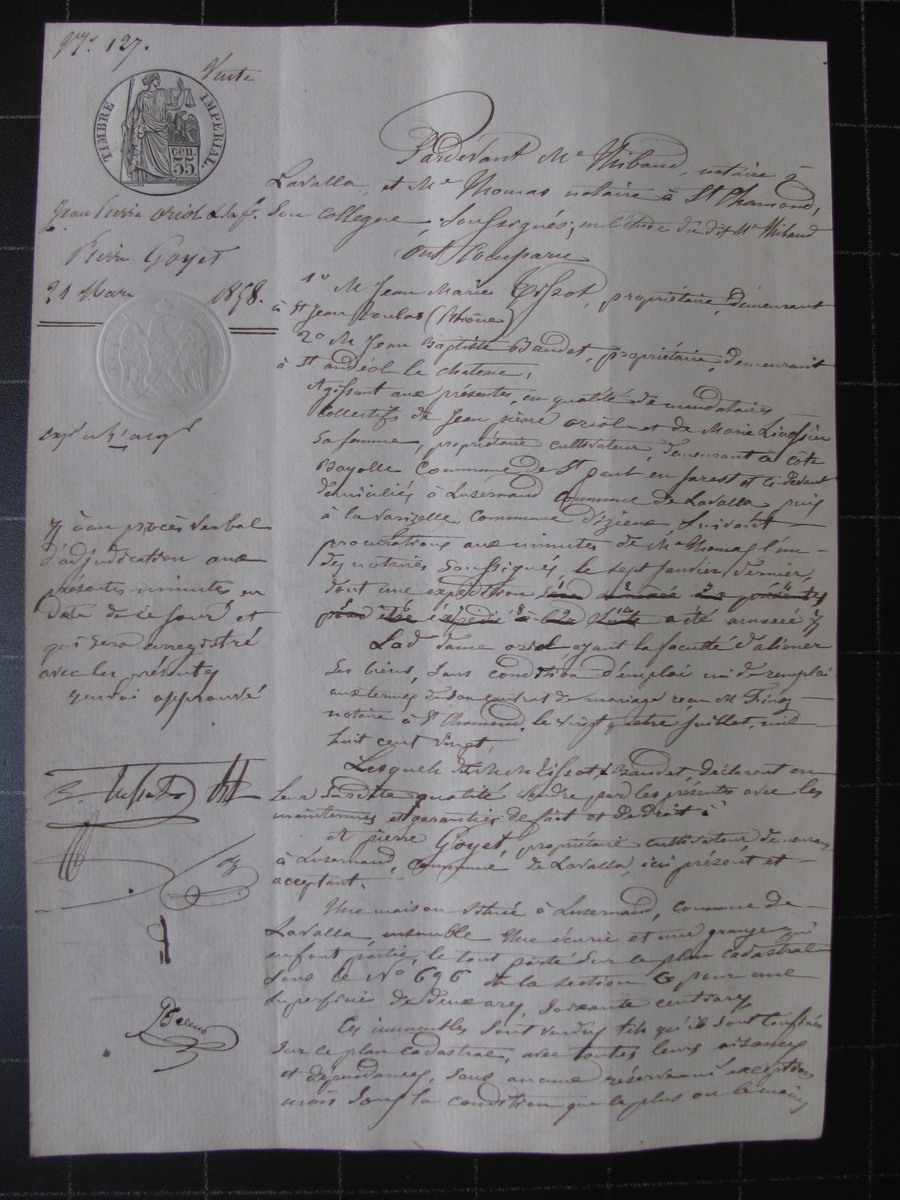 N° 127.
Vente
TIMBRE IMPERIAL
cen. 35
Jean Pierre oriol
Pierre Goyet
21 Mars 1858.
y à un procès verbal
d'adjudication aux
présentes minutes en
Date de ce jour et
qui sera enregistré
avec les présentes
approuvé
Pardevant Me Thibaud, notaire à
Lavalla, et Me Thomas notaire à St Chamond,
Son collegue Soussignés, en l'étude du dit Me Thibaud
Ont Comparu
1° M Jean Marie Tissot, propriétaire, demeurant
à St Jean Toulas (Rhône)
2° M Jean Baptiste Baudet, propriétaire, demeurant
à St andéol le chateau,
Agissant aux présentes, en qualité de mandataires
Collectifs de Jean pierre oriol et de Marie
sa femme, propriétaire cultivateur, demeurant à côte
Bayolle Commune de St paul en jarest et ci-devant
domiciliés à Luzernaud Commune de Lavalla puis
à la Varizelle Commune d'izieux Suivant
procurations aux minutes de Me Thomas l'un
des notaires Soussignés, le sept Janvier dernier,
dont une expédition a été annexé
Lad. Dame oriol ayant la faculté d'aliéner
ses biens, sans condition d'emploi ni de remploi
aux termes de son contrat de mariage reçu Me Finaz
notaire à St Chamond, le vingt quatre Juillet, mil
huit cent vingt,
Lesquels dits MM. Tissot & Baudet, déclarent en
leur Susdite qualité vendre par les présentes avec les
maintenues et garanties de fait et de droit à
M pierre Goyet, propriétaire cultivateur demeurant
à Luzernaud, Commune de Lavalla, ici présent et
acceptant.
Une maison située à Luzernaud, commune de
Lavalla ensemble Une écurie et une grange qui
en font partie, le tout porté Sur le plan cadastral
Sous le N° 696 de la section G pour une
Superficie de deux ares, soixante centiares
Ces immeubles Sont vendus tels qu'ils sont confinés
Sur le plan cadastral, avec toutes leurs aisances
et dépendances, Sans aucune réserve ni exception
mais Sous la condition que le plus ou le moins